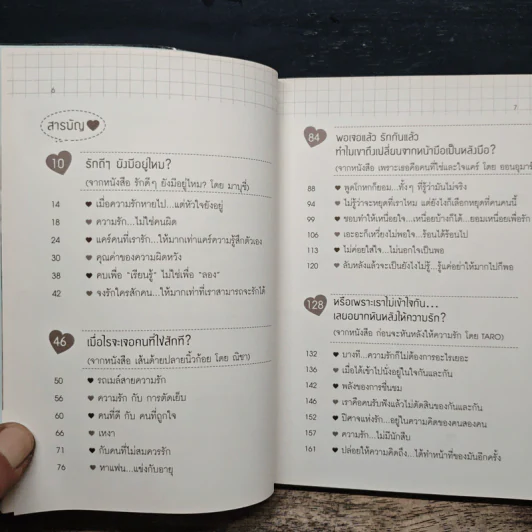 6
สารบัญ
10
รักดีๆ ยังมีอยู่ไหม?
(จากหนังสือ รักดีๆ ยังมีอยู่ไหม? โดย มานูซี่)
14 เมื่อความรักหายไป...แต่หัวใจยังอยู่
18 ความรัก...ไม่ใช่คนผิด
24 แคร์คนที่เรารัก...ให้มากเท่าแคร์ความรู้สึกตัวเอง
30 คุณค่าของความผิดหวัง
38 คบเพื่อ "เรียนรู้" ไม่ใช่เพื่อ "ลอง"
42 จงรักใครสักคน...ให้มากเท่าที่เราสามารถจะรักได้
46
เมื่อไรจะเจอคนที่ใช่สักที?
(จากหนังสือ เส้นด้ายปลายนิ้วก้อย โดย ณิชา)
50 รถเมล์สายความรัก
56 ความรัก กับ การตัดเย็บ
60 คนที่ดี กับ คนที่ถูกใจ
66 เหงา
71 กับคนที่ไม่สมควรรัก
76 หาแฟน...แข่งกับอายุ
7
84
พอเจอแล้ว รักกันแล้ว
ทำไมเขาถึงเปลี่ยนจากหน้ามือเป็นหลังมือ?
(จากหนังสือ เพราะเธอคือคนที่ใช่และใจแคร์ โดย
88 พูดโกหกก็ยอม...ทั้งๆ ที่รู้ว่ามันไม่จริง
94 ไม่รู้ว่าจะหยุดที่เราไหม แต่ยังไงก็เลือกหยุดที่คนคนนี้
99 ชอบทำให้เหนื่อยใจ...เหนื่อยบ้างก็ได้...ยอมเหนื่อยเพื่อรัก
106 เอะอะก็เหวี่ยงไม่พอใจ...ร้อนได้ร้อนไป
113 ไม่ค่อยใส่ใจ...ไม่นอกใจเป็นพอ
120 ลับหลังแล้วจะเป็นยังไงไม่รู้...รู้แค่อย่าให้มากไปก็พอ
128
หรือเพราะเราไม่เข้าใจกัน...
เลยอยากหันหลังให้ความรัก?
(จากหนังสือ ก่อนจะหันหลังให้ความรัก โดย TARO)
132 บางที...ความรักก็ไม่ต้องการอะไรเยอะ
136 เมื่อได้เข้าไปนั่งอยู่ในใจกันและกัน
142 พลังของการชื่นชม
146 เราคือคนรับฟังแล้วไม่ตัดสินของกันและกัน
152 ปีศาจแห่งรัก...อยู่ในความคิดของคนสองคน
157 ความรัก...ไม่มีนักสืบ
161 ปล่อยให้ความคิดถึง...ได้ทำหน้าที่ของมันอีกครั้ง